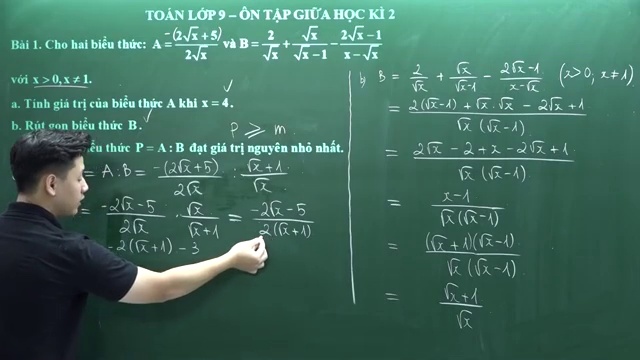 TOÁN LỚP 9 – ÔN TẬP GIỮA HỌC KÌ 2
Bài 1. Cho hai biểu thức: A = -(2√x + 5)/2√x và B = 2/√x + √x/(√x − 1) − (2√x − 1)/(x − √x)
với x > 0, x ≠ 1.
a. Tính giá trị của biểu thức A khi x = 4. ✓
b. Rút gọn biểu thức B. ✓
P ⩾ m
thức P = A : B đạt giá trị nguyên nhỏ nhất.
= A : B = -(2√x + 5)/2√x : (√x + 1)/√x
= (-2√x - 5)/2√x · √x/(√x + 1) = (-2√x - 5)/2(√x + 1)
-2(√x + 1) - 3
b, B = 2/√x + √x/(√x-1) - (2√x-1)/(x-√x) (x>0; x≠1)
= (2(√x-1) + √x.√x - 2√x + 1)/√x (√x-1)
= (2√x - 2 + x - 2√x + 1)/√x (√x-1)
= (x-1)/√x(√x-1)
= (√x+1)(√x-1)/√x (√x-1)
= (√x+1)/√x